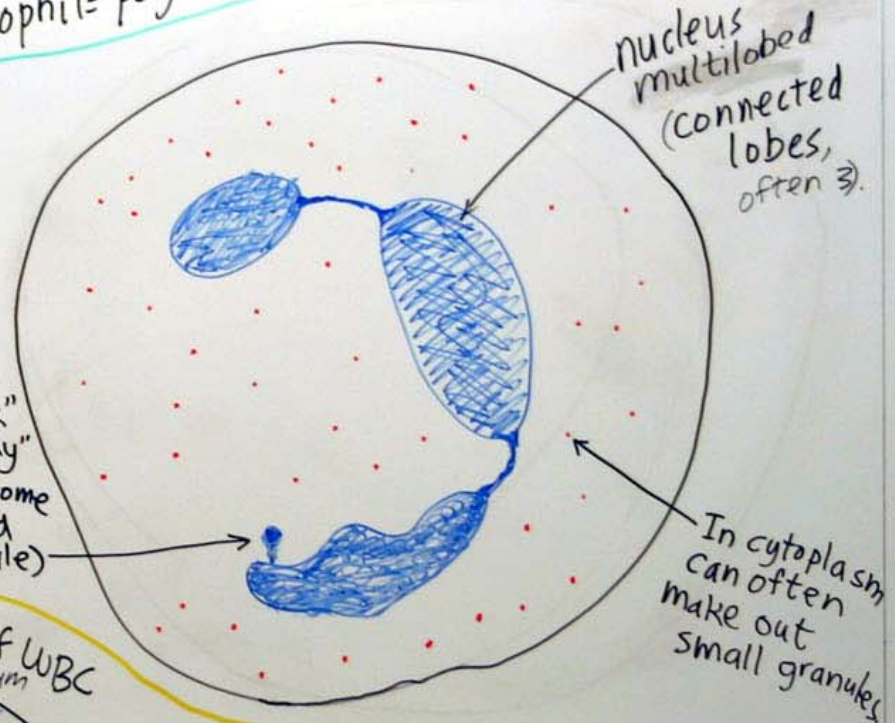 ophil =
nucleus
multilobed
(connected
lobes,
often 3).
y"
ome
In cytoplasm
can often
make out
small granules
f WBC